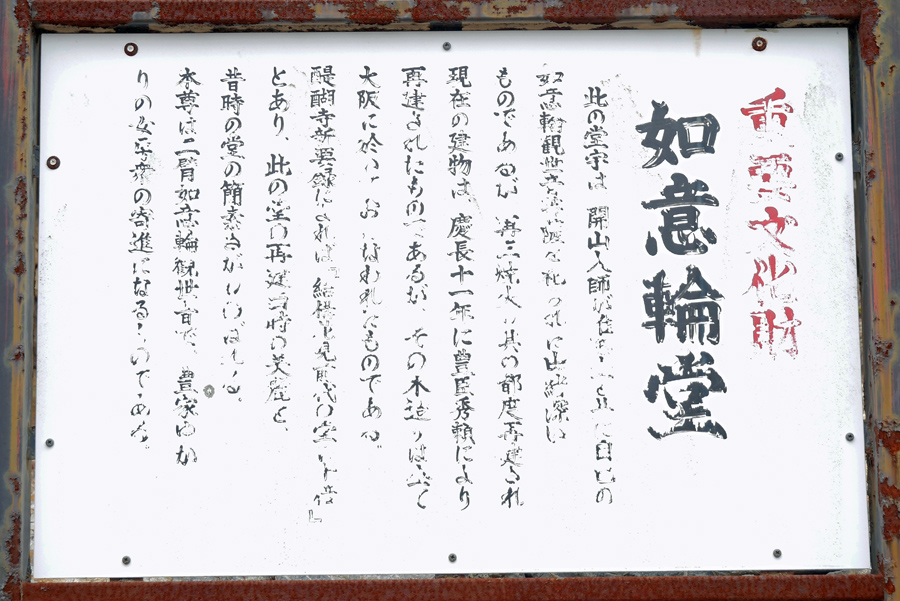 重要文化財
如意輪堂
此の堂宇は、開山大師が准 と共に自己の
如意輪観世音 礼 れた由緒深い
ものであるが、再三焼失し其の都度再建され
現在の建物は、慶長十一年に豊臣秀頼により
再建されたものであるが、その木造りは全く
大阪に於いておこなわれたものである。
醍醐寺新要録によれば『結構 見前代の堂 十倍』
とあり、此の堂の再建当時の美麗と、
昔時の堂の簡素さがしのばれる。
本尊は二臂如意輪観世音で、豊家ゆか
りの女房衆の寄進になるものである。